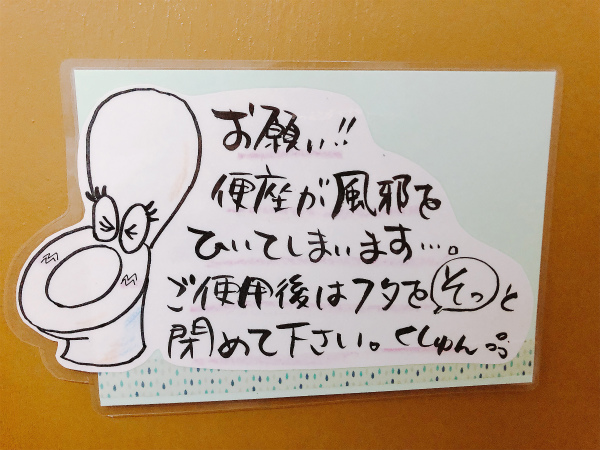 お願い!!
便座が風邪を
ひいてしまいます…。
ご使用後はフタをそっと
閉めて下さい。くしゅん